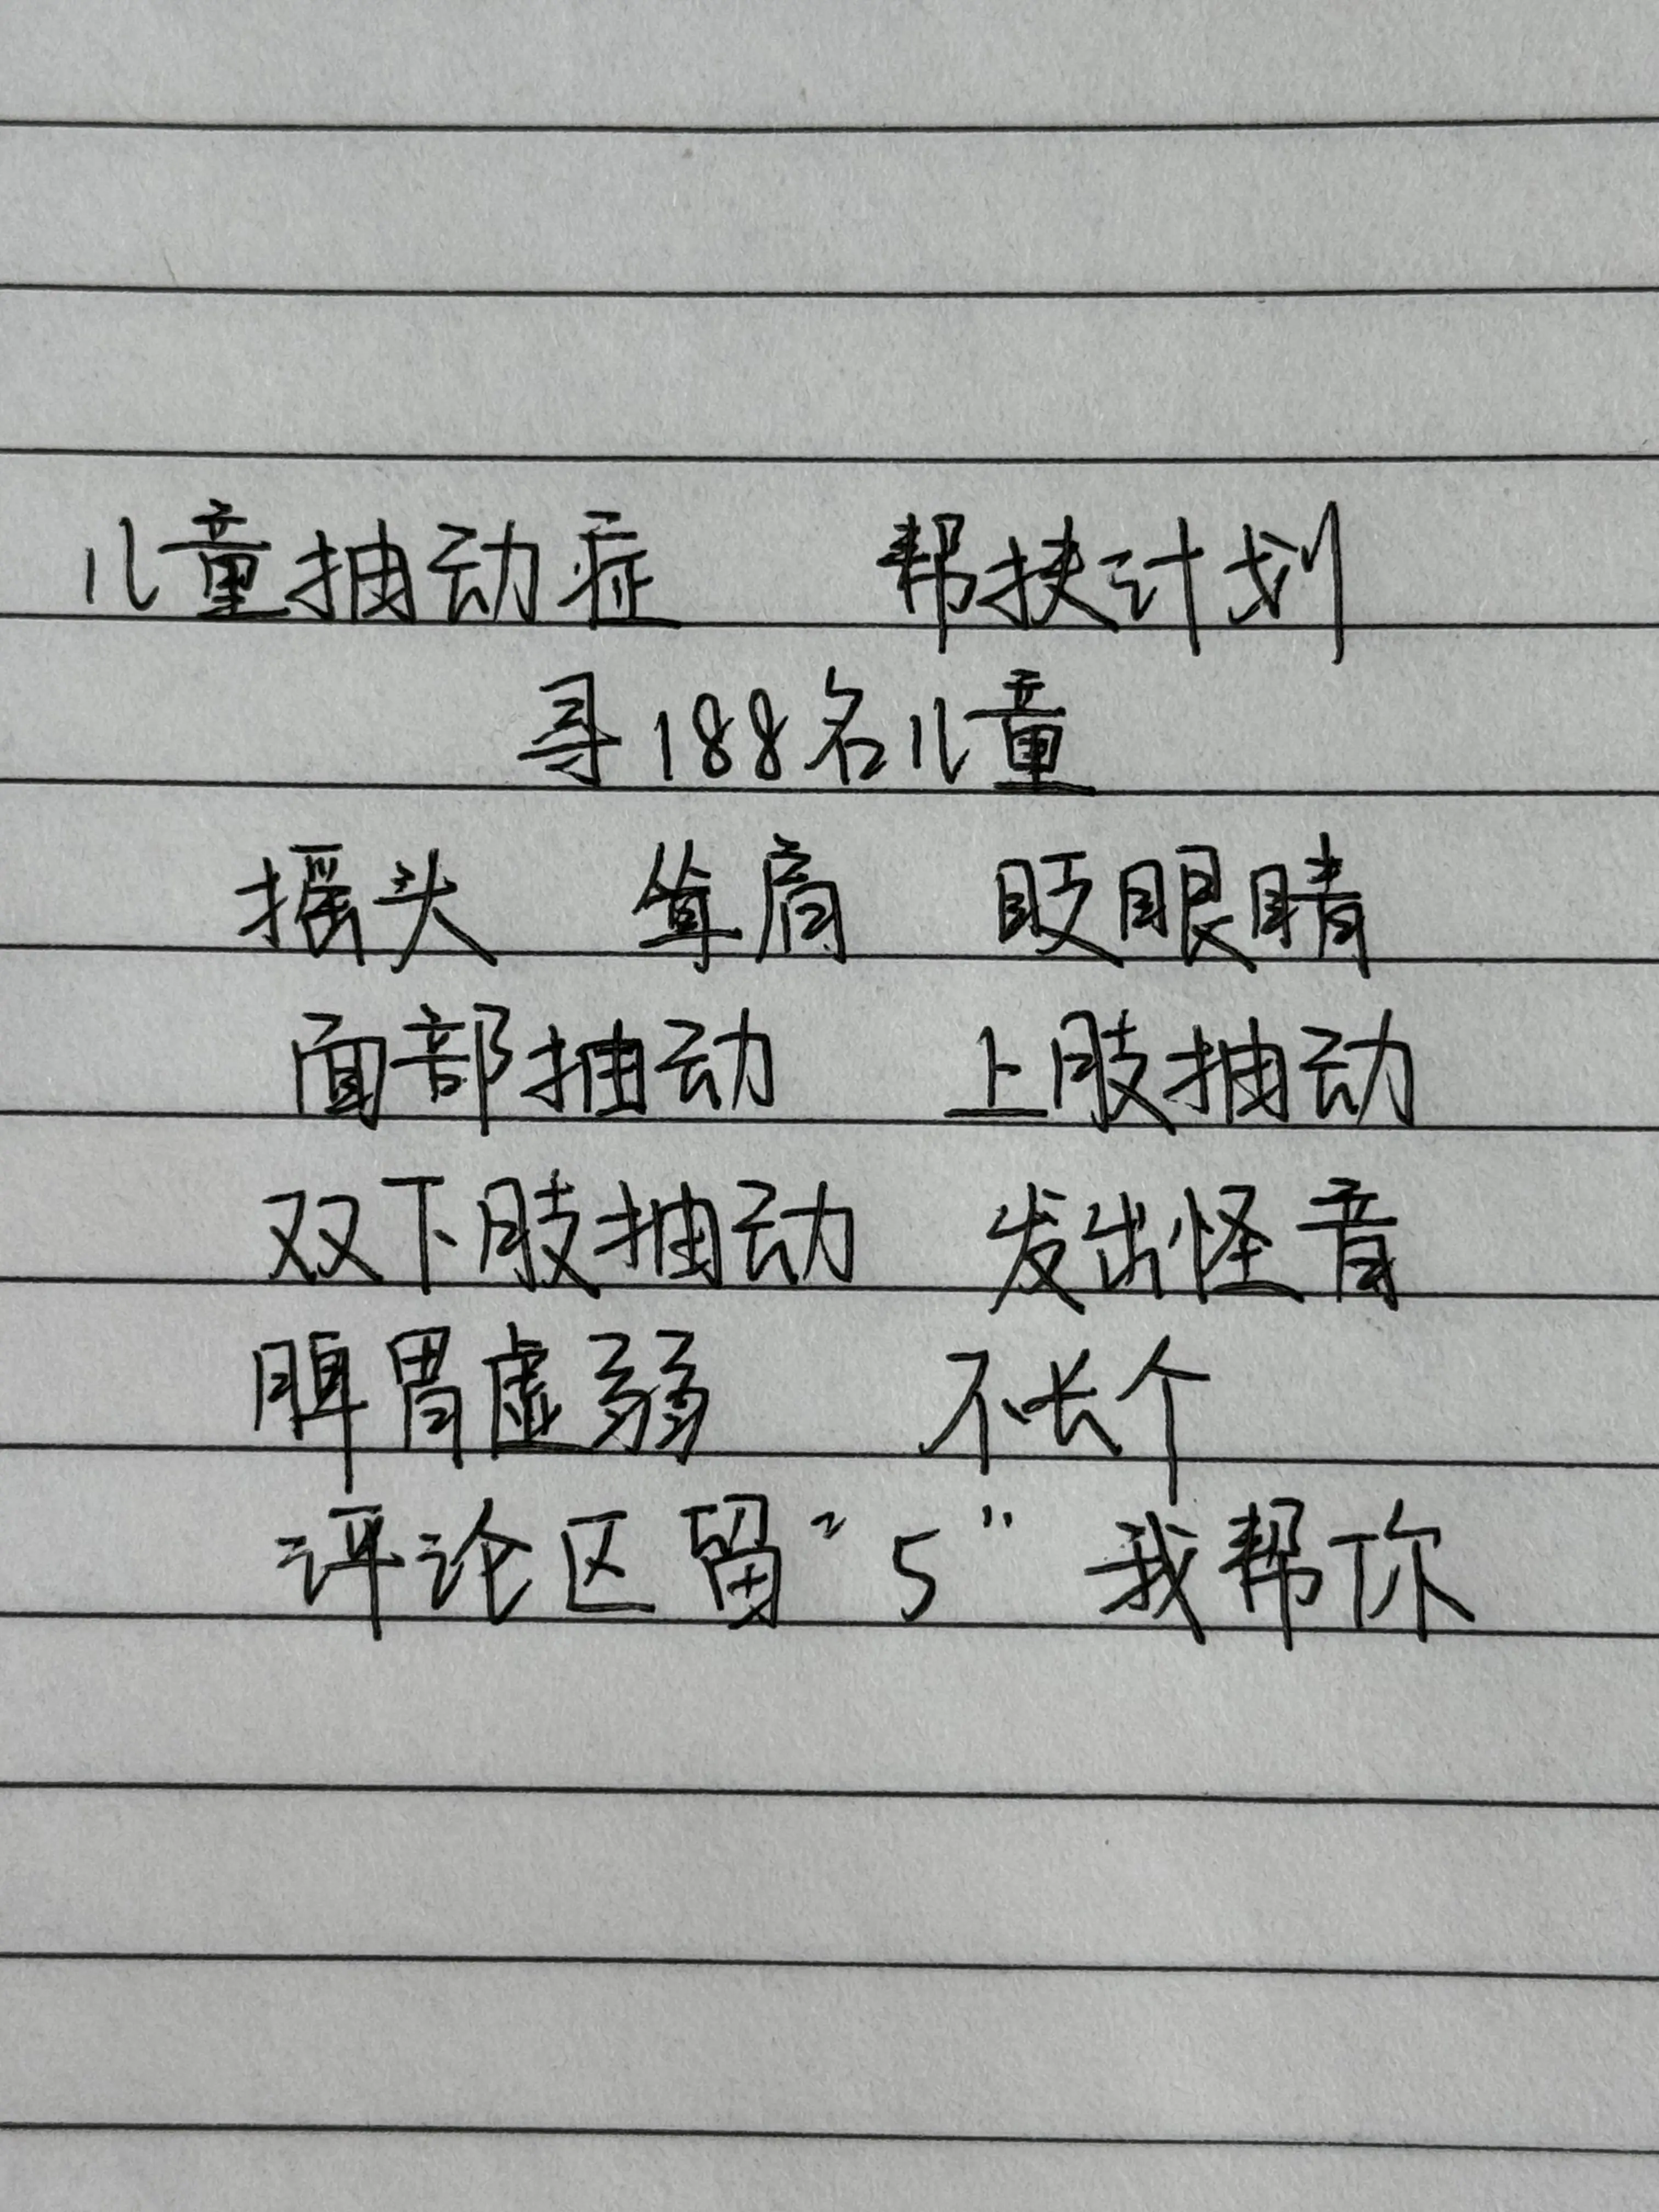 儿童抽动症 帮扶计划
寻188名儿童
摇头 耸肩 眨眼睛
面部抽动 上肢抽动
双下肢抽动 发出怪音
脾胃虚弱 不长个
评论区留“5”我帮你